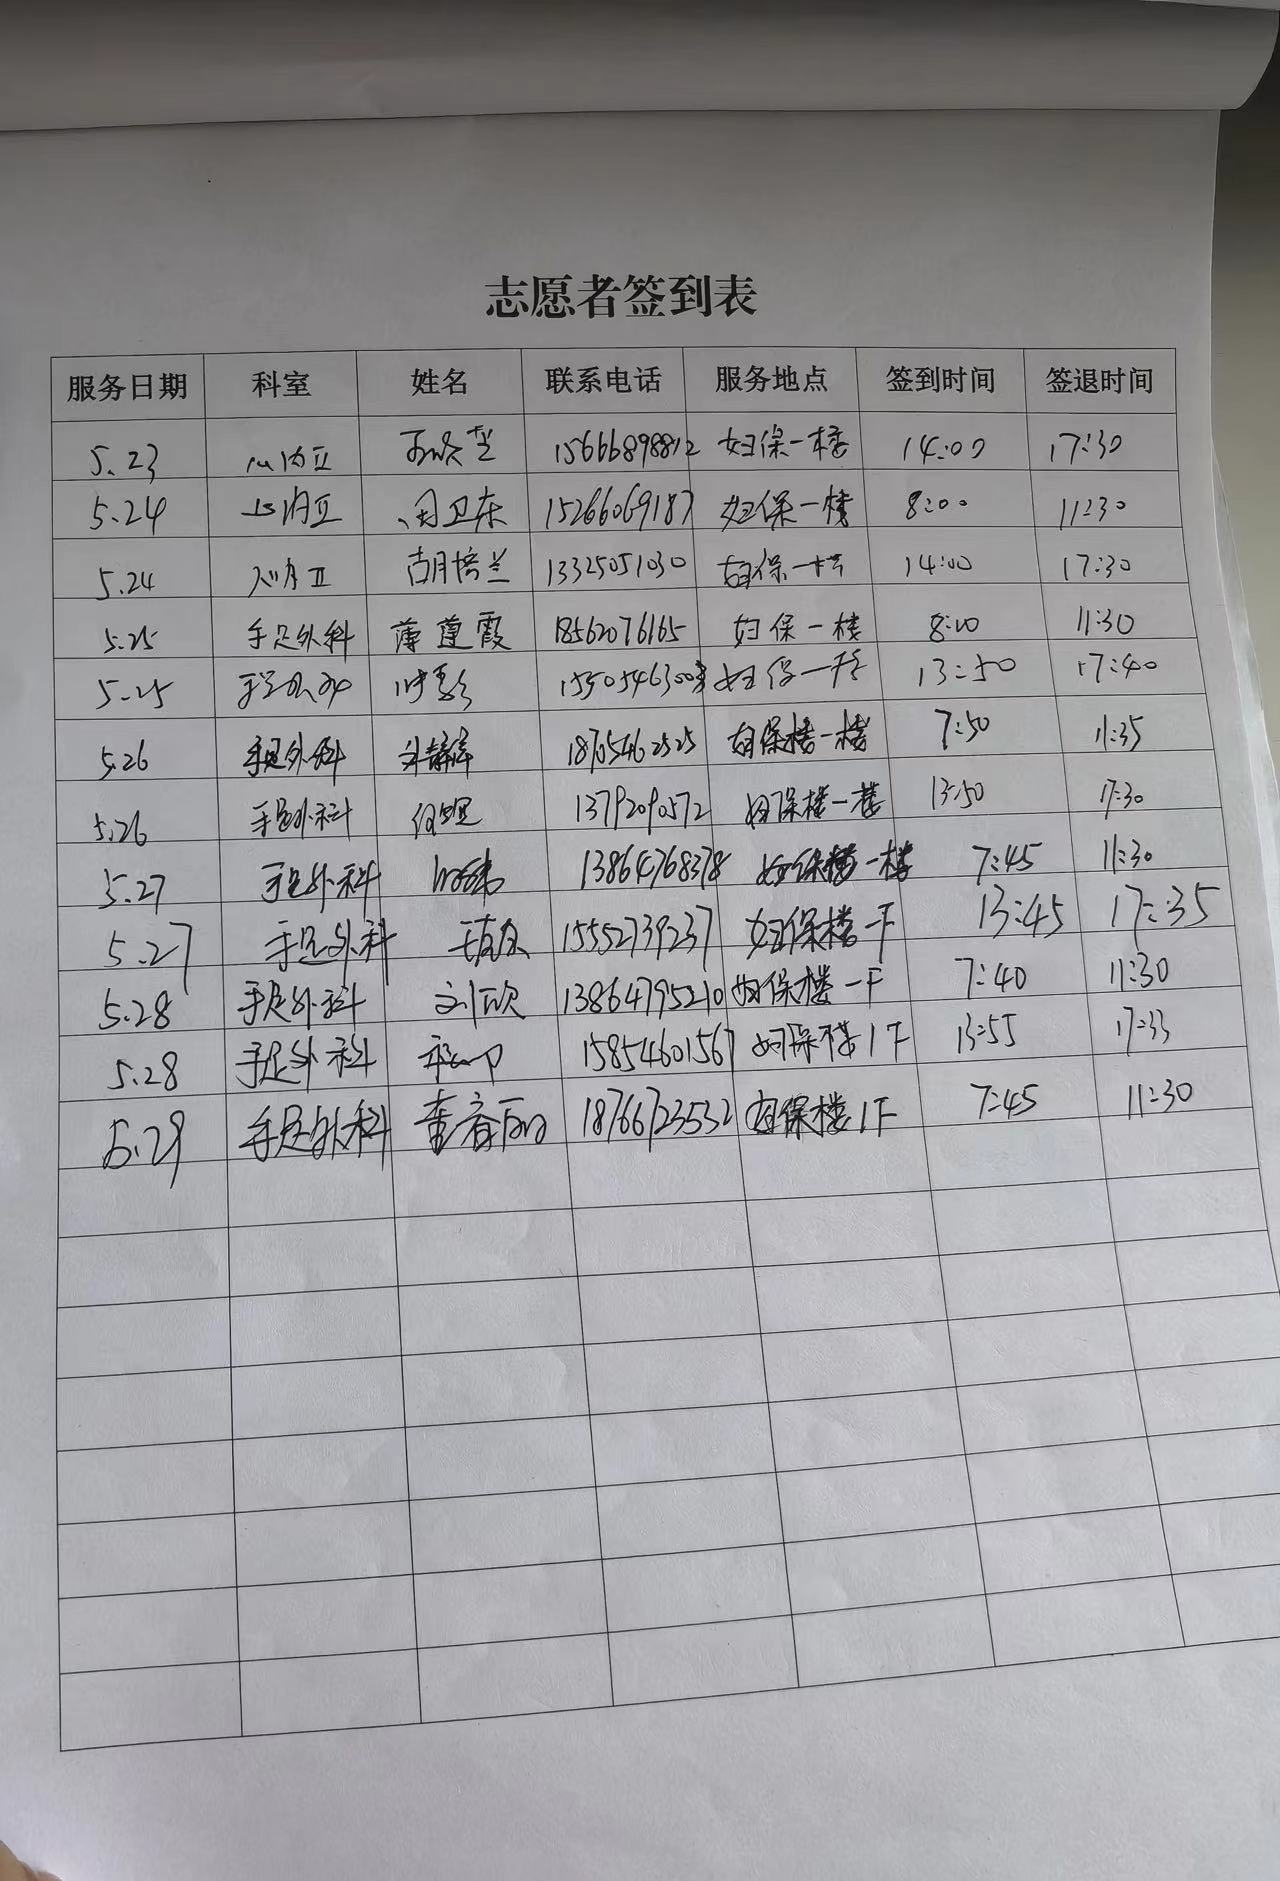 志愿者签到表
服务日期 科室 姓名 联系电话 服务地点 签到时间 签退时间
5.23 心内Ⅱ 15666898812 妇保一楼 14:00 17:30
5.24 心内Ⅱ 周卫东 15266069187 妇保一楼 8:00 11:30
5.24 心内Ⅱ 胡培兰 13325051030 妇保一楼 14:00 17:30
5.25 手足外科 薄莲霞 18562076165 妇保一楼 8:00 11:30
5.25 手足外科 妇保一楼 13:50 17:40
5.26 手足外科 18705462525 妇保楼一楼 7:50 11:35
5.26 手足外科 13792090572 妇保楼一楼 13:50 17:30
5.27 手足外科 13864768378 妇保楼一楼 7:45 11:30
5.27 手足外科 15552739237 妇保楼一F 13:45 17:35
5.28 手足外科 刘欣 13864795210 妇保楼一F 7:40 11:30
5.28 手足外科 15854601567 妇保楼1F 13:55 17:33
5.29 手足外科 18766723532 妇保楼1F 7:45 11:30